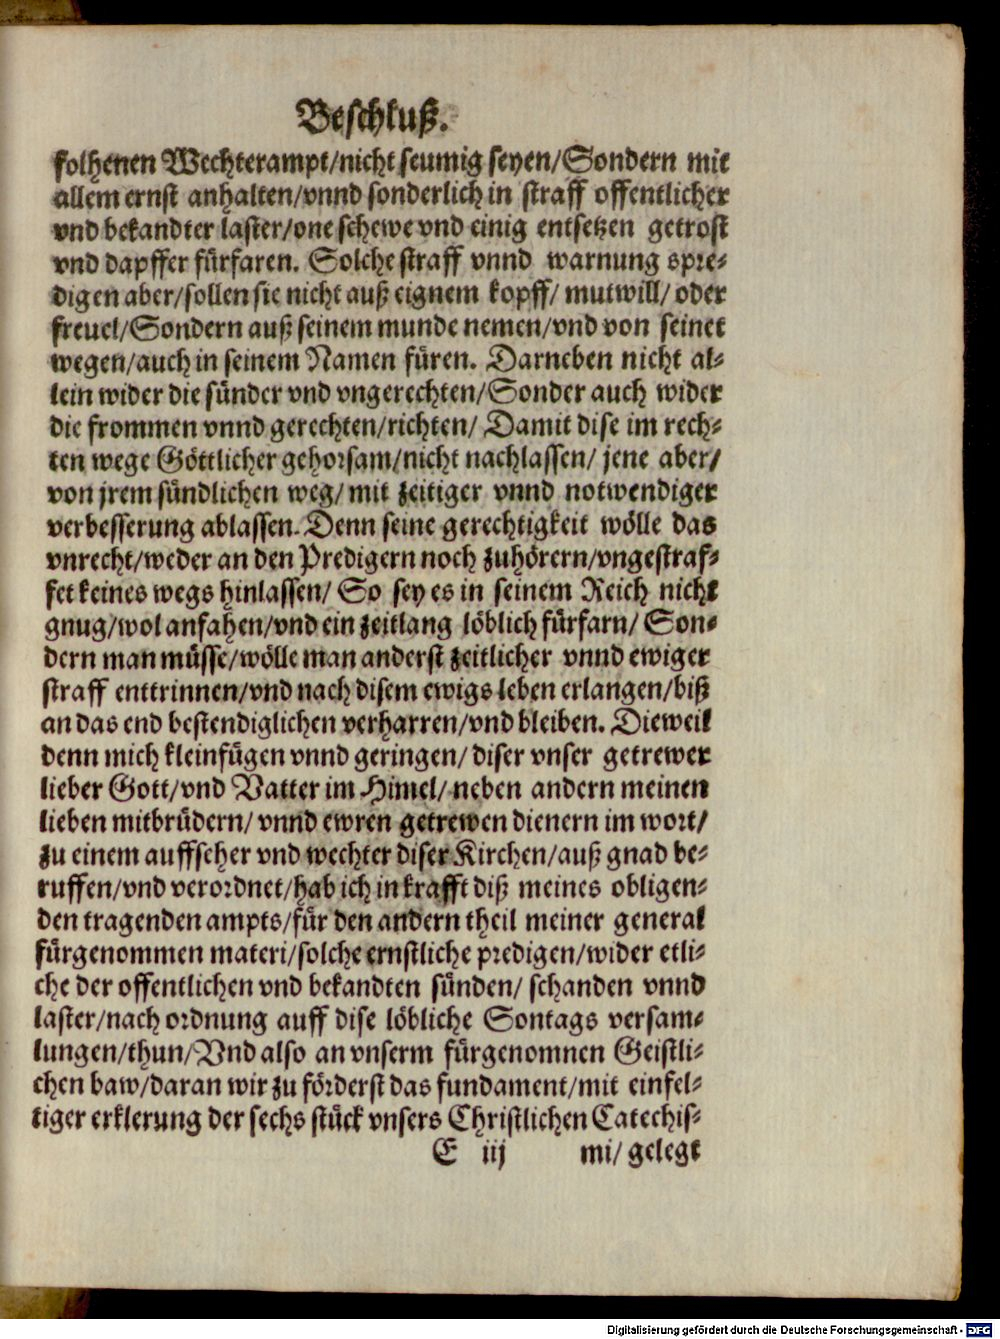 Beschluß.
folhenen Wechterampt/nicht seumig seyen/Sondern mit
allem ernst anhalten/vnnd sonderlich in straff offentlicher
vnd bekandter laster/one schewe vnd einig entsetzen getrost
vnd dapffer fürfaren. Solche straff vnnd warnung spre-
digen aber/sollen sie nicht auß eignem kopff/ mutwill/ oder
freuel/Sondern auß seinem munde nemen/vnd von seinet
wegen/auch in seinem Namen füren. Darneben nicht al-
lein wider die sünder vnd vngerechten/Sonder auch wider
die frommen vnnd gerechten/richten/ Damit dise im rech-
ten wege Göttlicher gehorsam/nicht nachlassen/ jene aber/
von jrem sündlichen weg/ mit zeitiger vnnd notwendiger
verbesserung ablassen. Denn seine gerechtigkeit wölle das
vnrecht/weder an den Predigern noch zuhörern/vngestraf-
fet keines wegs hinlassen/ So sey es in seinem Reich nicht
gnug/wol anfahen/vnd ein zeitlang löblich fürfarn/ Son-
dern man müsse/wölle man anderst zeitlicher vnnd ewiger
straff enttrinnen/vnd nach disem ewigs leben erlangen/biß
an das end bestendiglichen verharren/vnd bleiben. Dieweil
denn mich kleinfügen vnnd geringen/ diser vnser getrewer
lieber Gott/vnd Vatter im Himel/ neben andern meinen
lieben mitbrüdern/ vnnd ewren getrewen dienern im wort/
zu einem auffseher vnd wechter diser Kirchen/auß gnad be-
ruffen/vnd verordnet/hab ich in krafft diß meines obligen-
den tragenden ampts/für den andern theil meiner general
fürgenommen materi/solche ernstliche predigen/wider etli-
che der offentlichen vnd bekandten sünden/ schanden vnnd
laster/nach ordnung auff dise löbliche Sontags versam-
lungen/thun/Vnd also an vnserm fürgenomnen Geistli-
chen baw/daran wir zu förderst das fundament/mit einfel-
tiger erklerung der sechs stück vnsers Christlichen Catechis-
E iij mi/ gelegt
Digitalisierung gefördert durch die Deutsche Forschungsgemeinschaft - DFG